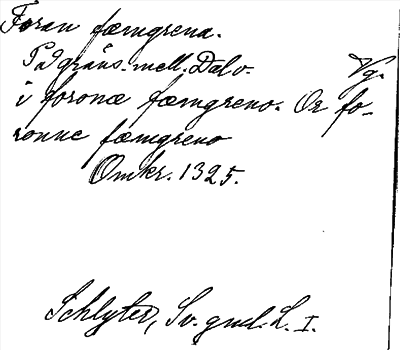 Foran fæmgrena.
På gräns. mell. Dal o. Vg.
i foronæ fæmgreno. Or fo-
ronne fæmgreno
Omkr. 1325.
Schlyter, Sv. gml. L. I.